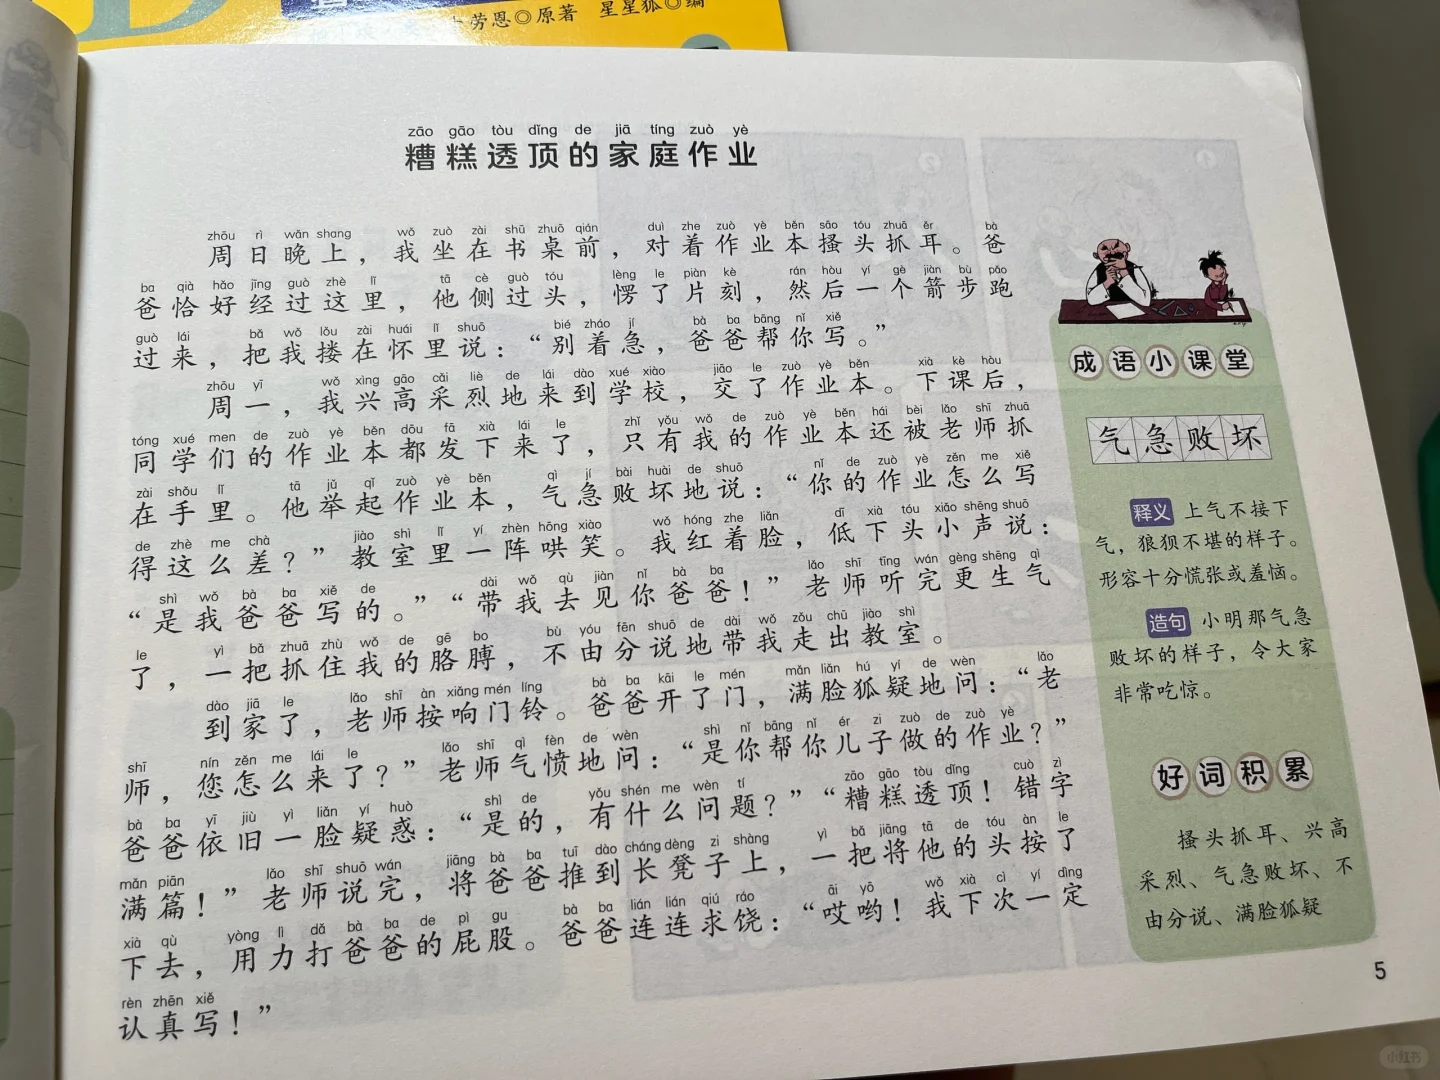 劳恩◎原著 星星狐◎编
zāo gāo tòu dǐng de jiā tíng zuò yè
糟糕透顶的家庭作业
zhōu rì wǎn shang wǒ zuò zài shū zhuō qián duì zhe zuò yè běn sāo tóu zhuā ěr bà
周日晚上，我坐在书桌前，对着作业本搔头抓耳。爸
ba qià hǎo jīng guò zhè lǐ tā cè guò tóu lèng le piàn kè rán hòu yí gè jiàn bù pǎo
爸恰好经过这里，他侧过头，愣了片刻，然后一个箭步跑
guò lái bǎ wǒ lǒu zài huái lǐ shuō bié zháo jí bà ba bāng nǐ xiě
过来，把我搂在怀里说：“别着急，爸爸帮你写。”
zhōu yī wǒ xìng gāo cǎi liè de lái dào xué xiào jiāo le zuò yè běn xià kè hòu
周一，我兴高采烈地来到学校，交了作业本。下课后，
tóng xué men de zuò yè běn dōu fā xià lái le zhǐ yǒu wǒ de zuò yè běn hái bèi lǎo shī zhuā
同学们的作业本都发下来了，只有我的作业本还被老师抓
zài shǒu lǐ tā jǔ qǐ zuò yè běn qì jí bài huài de shuō nǐ de zuò yè zěn me xiě
在手里。他举起作业本，气急败坏地说：“你的作业怎么写
de zhè me chà jiào shì lǐ yí zhèn hōng xiào wǒ hóng zhe liǎn dī xià tóu xiǎo shēng shuō
得这么差？”教室里一阵哄笑。我红着脸，低下头小声说：
shì wǒ bà ba xiě de dài wǒ qù jiàn nǐ bà ba lǎo shī tīng wán gèng shēng qì
“是我爸爸写的。”“带我去见你爸爸！”老师听完更生气
le yì bǎ zhuā zhù wǒ de gē bo bù yóu fēn shuō de dài wǒ zǒu chū jiào shì
了，一把抓住我的胳膊，不由分说地带我走出教室。
dào jiā le lǎo shī àn xiǎng mén líng bà ba kāi le mén mǎn liǎn hú yí de wèn lǎo
到家了，老师按响门铃。爸爸开了门，满脸狐疑地问：“老
shī nín zěn me lái le lǎo shī qì fèn de wèn shì nǐ bāng nǐ ér zi zuò de zuò yè
师，您怎么来了？”老师气愤地问：“是你帮你儿子做的作业？”
bà ba yī jiù yì liǎn yí huò shì de yǒu shén me wèn tí zāo gāo tòu dǐng cuò zì
爸爸依旧一脸疑惑：“是的，有什么问题？”“糟糕透顶！错字
mǎn piān lǎo shī shuō wán jiāng bà ba tuī dào cháng dèng zi shàng yì bǎ jiāng tā de tóu àn le
满篇！”老师说完，将爸爸推到长凳子上，一把将他的头按了
xià qù yòng lì dǎ bà ba de pì gu bà ba lián lián qiú ráo āi yō wǒ xià cì yí dìng
下去，用力打爸爸的屁股。爸爸连连求饶：“哎哟！我下次一定
rèn zhēn xiě
认真写！”
成语小课堂
气急败坏
释义 上气不接下
气，狼狈不堪的样子。
形容十分慌张或羞恼。
造句 小明那气急
败坏的样子，令大家
非常吃惊。
好词积累
搔头抓耳、兴高
采烈、气急败坏、不
由分说、满脸狐疑
5
小红书